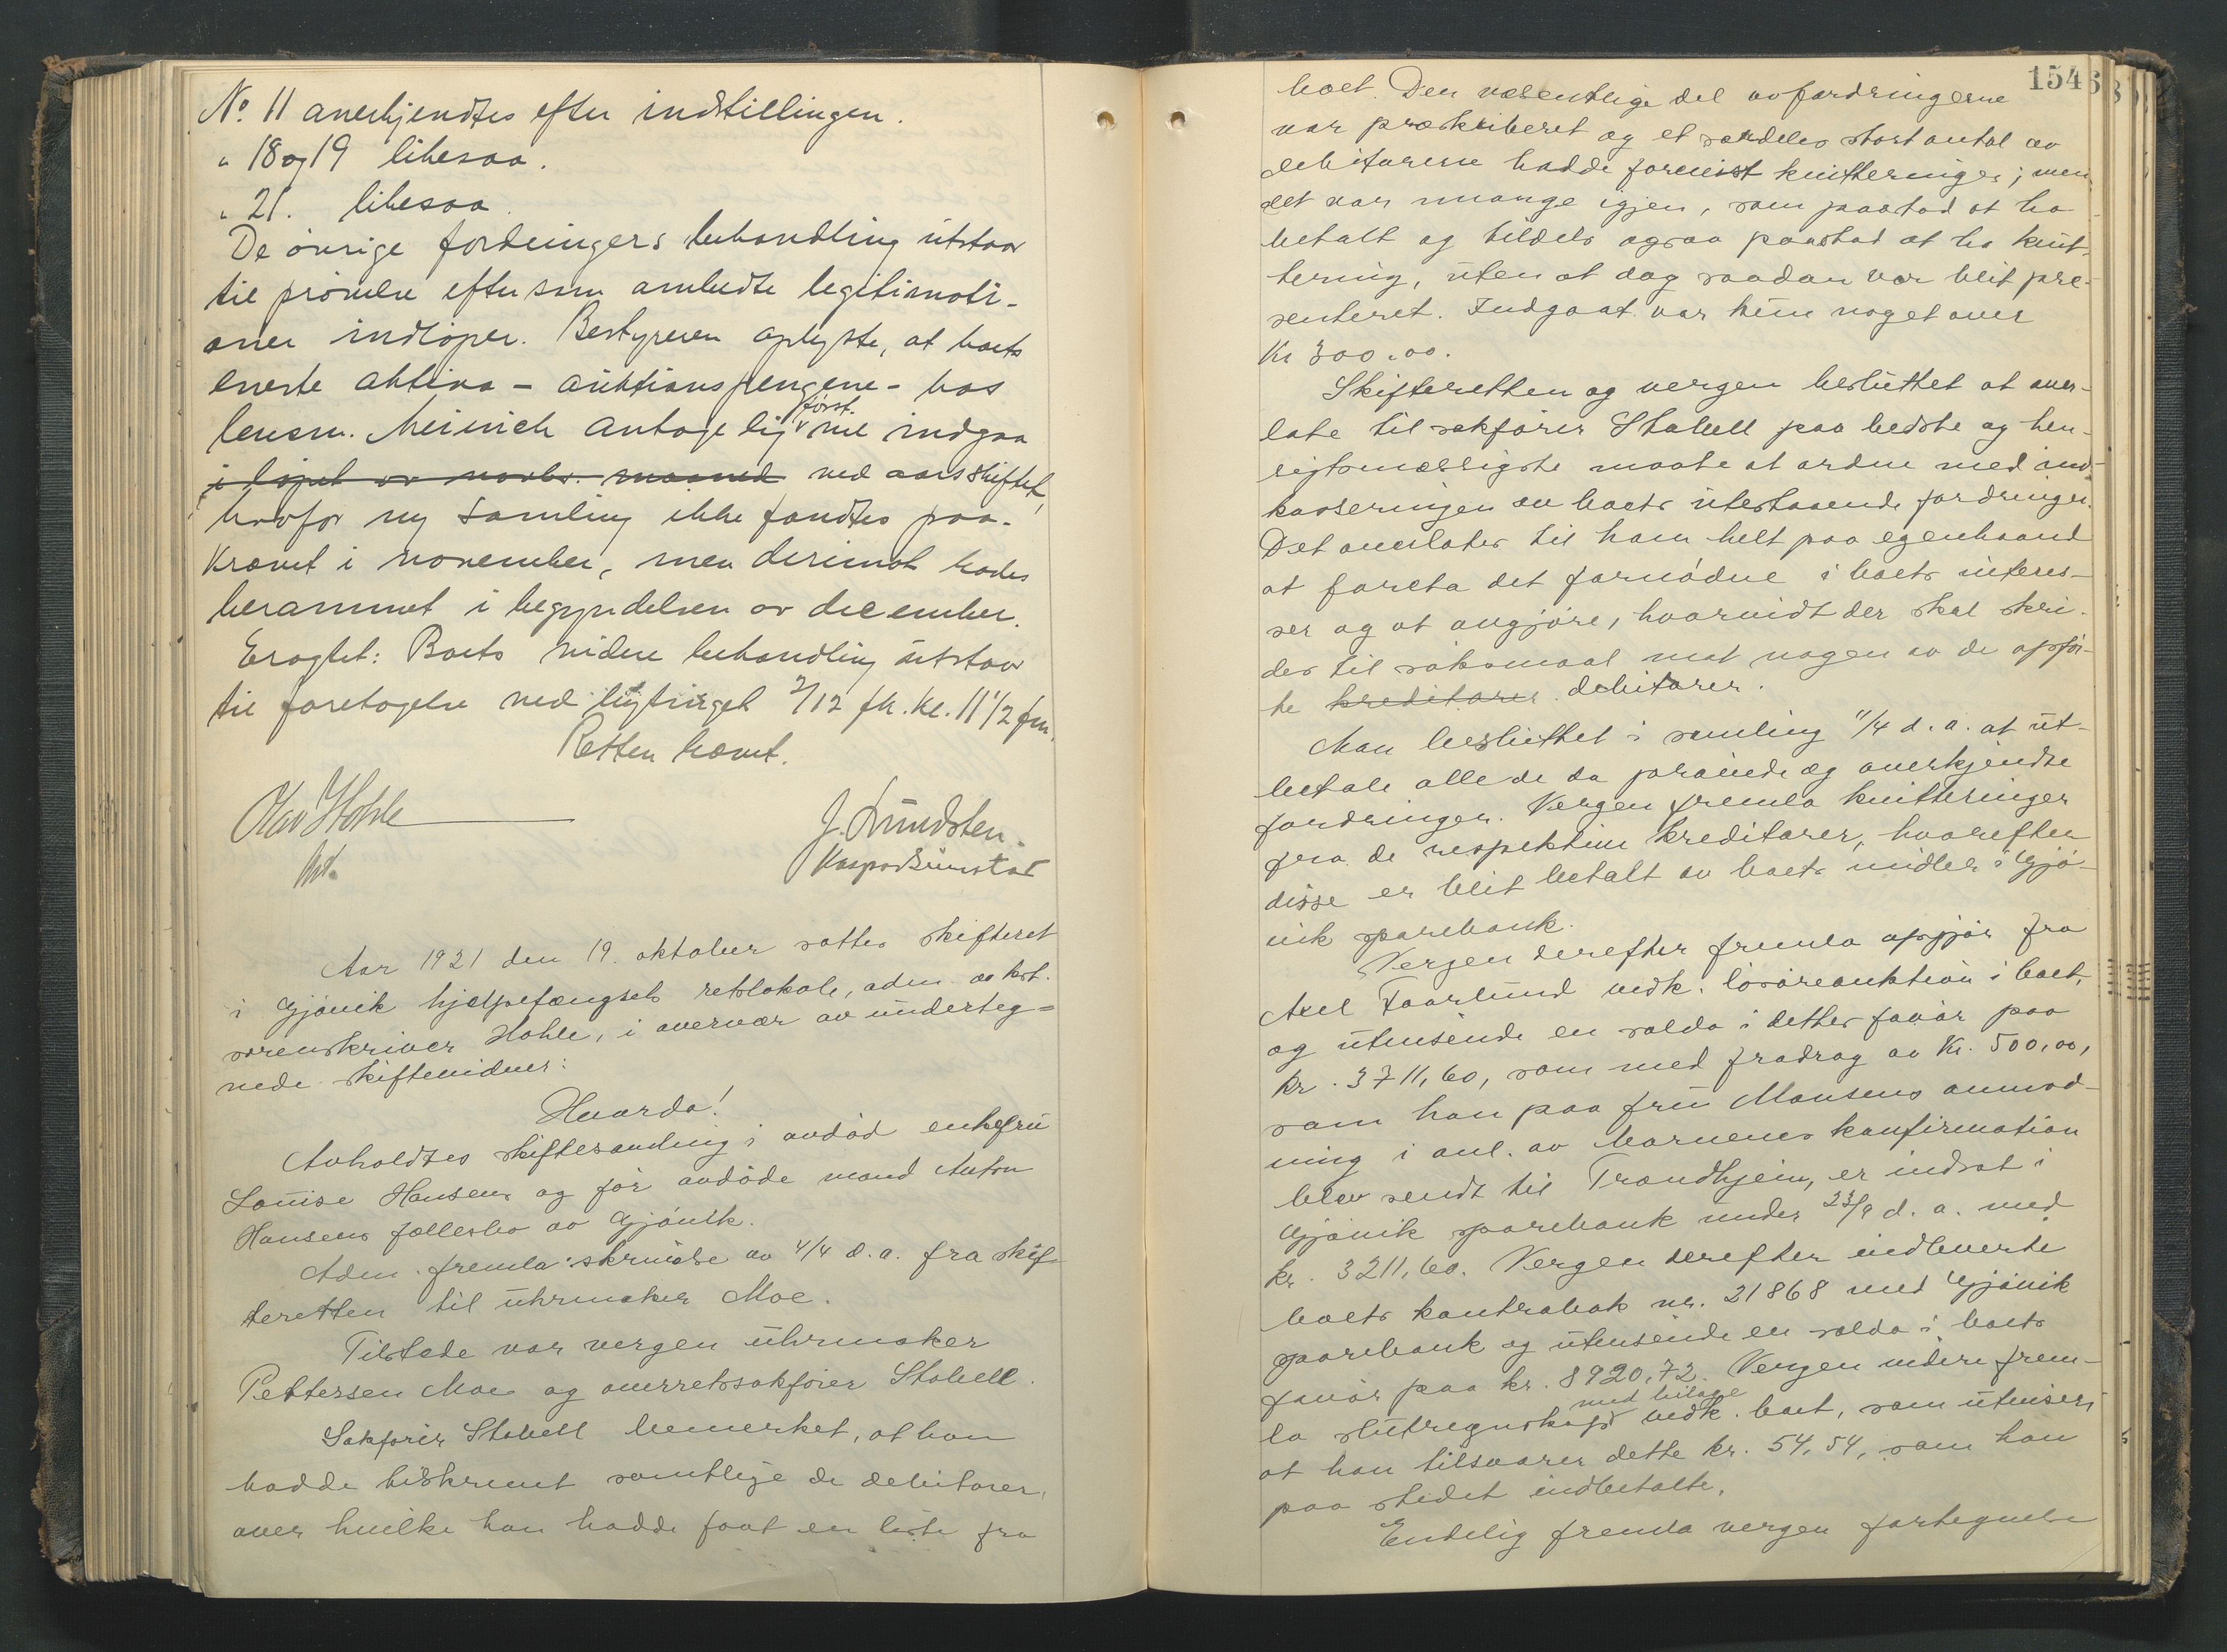 No. 11 anerkjendtes efter indstillingen.
" 18 og 19 likesaa.
" 21. likesaa.
De övrige fordringers behandling utstaar
til prövelse eftersom anbudte legitimati-
oner indlöper. Bestyreren oplyste, at boets
eneste aktiva - auktionspengene - hos
lensm. Meinich antagelig först vil indgaa
i löpet av novbr. maaned ved aarsskiftet,
hvorfor ny samling ikke fandtes paa-
krævet i november, men derimot burdes
berammet i begyndelsen av december.
Eragtet: Boets videre behandling utstaar
til foretagelse ved bygtinget 2/12 fk. kl. 11 1/2 fm.
Retten hævet.
Olav Hohle
kst.
J. Lundsten.
Kaspar Bunstad
Aar 1921 den 19. oktober sattes skifteret
i Gjövik hjælpefængsels retslokale, adm. av kst.
sorenskriver Hohle, i overvær av underteg=
nede skiftevidner:
Hvorda!
Avholdtes skiftesamling i avdöd enkefru
Louise Hansens og för avdöde mand Anton
Hansens fællesbo av Gjövik.
Adm. fremla: skrivelse av 4/4 d.a. fra skif-
teretten til uhrmaker Moe.
Tilstede var vergen uhrmaker
Pettersen Moe og overretssakförer Stabell.
Sakförer Stabell bemerket, at han
hadde tilskrevet samtlige de debitorer,
over hvilke han hadde faat en liste fra
1546
boet. Den væsentlige del av fordringerne
var præskriberet og et særdeles stort antal av
debitorerne hadde forevist kvitteringer; men
det var mange igjen, som paastod at ha
betalt og tildels ogsaa paastod at ha kvit-
tering, uten at dog saadan var blit præ-
senteret. Indgaat var kun noget over
Kr 300.00.
Skifteretten og vergen besluttet at over-
late til sakförer Stabell paa bedste og hen-
sigtsmæssigste maate at ordne med ind-
kasseringen av boets utestaaende fordringer.
Det overlates til ham helt paa egenhaand
at foreta det fornödne i boets interes-
ser og at avgjöre, hvorvidt der skal skri-
des til söksmaal mot nogen av de opför-
te kreditorer debitorer.
Man besluttet i samling 11/4 d.a. at ut-
betale alle de da prövede og anerkjendte
fordringer. Vergen fremla kvitteringer
fra de respektive kreditorer, hvorefter
disse er blit betalt av boets midler i Gjö-
vik sparebank.
Vergen derefter fremla opgjör fra
Axel Faarlund vedk. lösöreauktion i boet,
og utvisende en saldo i dettes favör paa
kr. 3711,60, som med fradrag av Kr. 500,00,
som han paa fru Monsens anmod-
ning i anl. av barnenes konfirmation
blev sendt til Trondhjem, er indsat i
Gjövik sparebank under 23/9 d.a. med
kr. 3211,60. Vergen derefter indleverte
boets kontrabok nr. 21868 med Gjövik
sparebank og utvisende en saldo i boets
favör paa kr. 8920,72. Vergen videre frem-
la slutregnskap med bilage vedk. boet, som utviser,
at han tilsvarer dette kr. 54,54, som han
paa stedet indbetalte.
Endelig fremla vergen fortegnelse